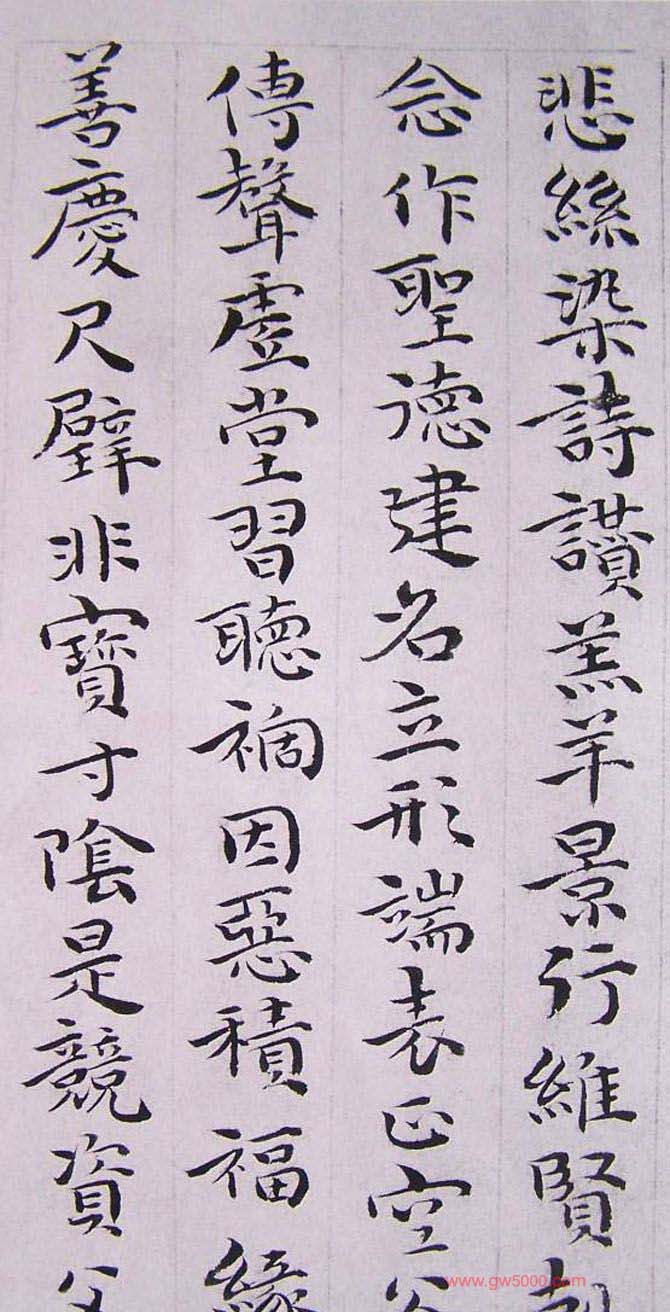 悲絲染詩讚羔羊景行維賢剋
念作聖德建名立形端表正空谷
傳聲虛堂習聽禍因惡積福緣
善慶尺璧非寶寸陰是競資父
www.gw5000.com